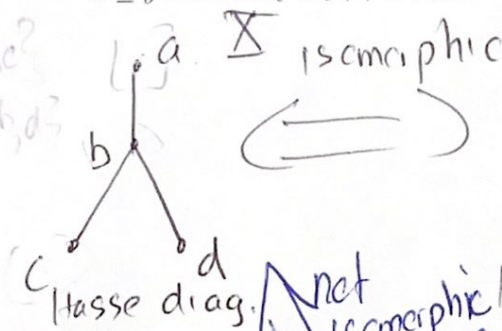 a X isomorphic
b
c d
Hasse diag. not
isomorphic!